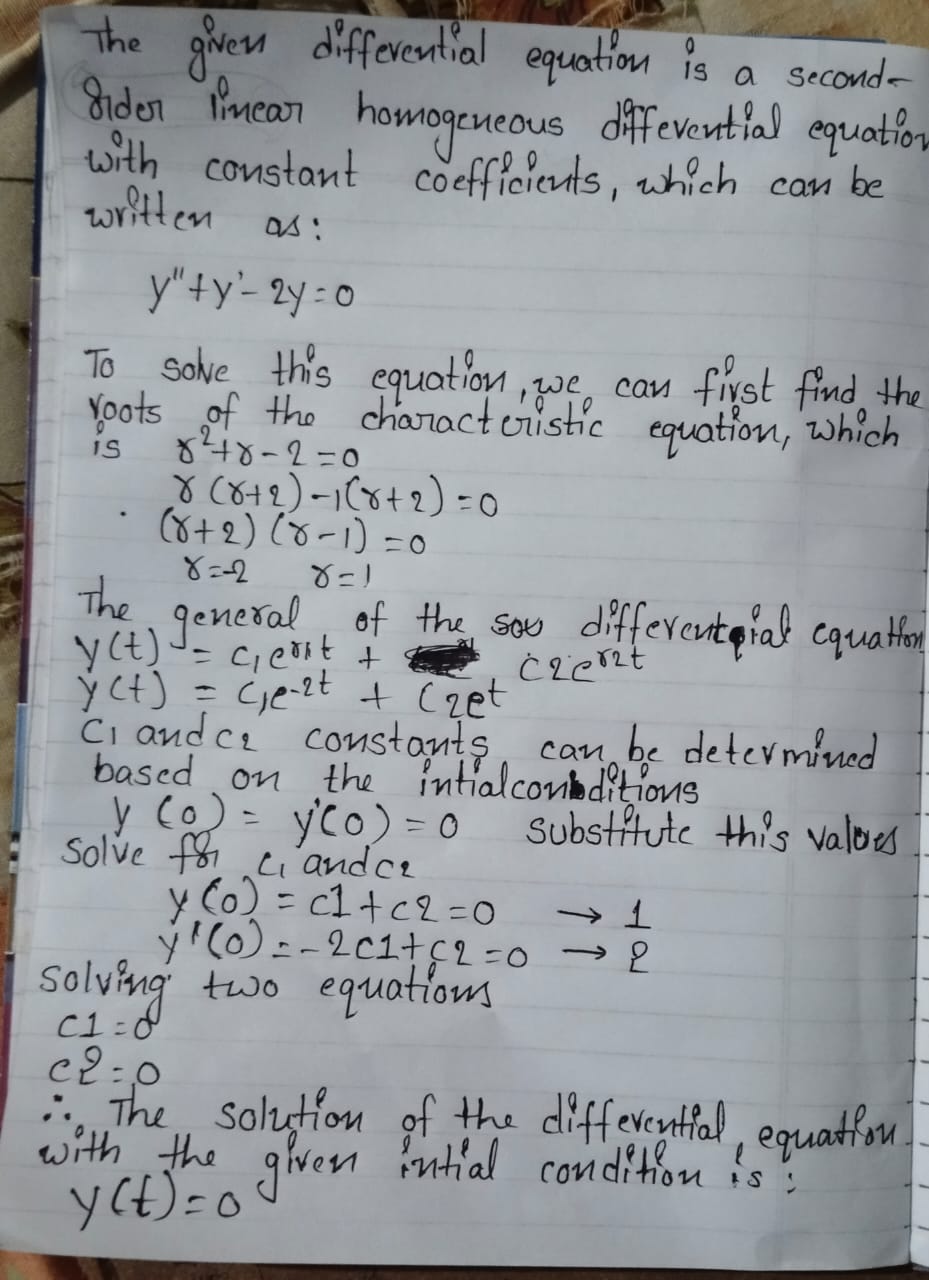 The given differential equation is a second-
order linear homogeneous differential equation
with constant coefficients, which can be
written as:
y"+y'-2y=0
To solve this equation, we can first find the
roots of the characteristic equation, which
is r²+r-2=0
r(r+2)-1(r+2)=0
(r+2)(r-1)=0
r=-2 r=1
The general of the sou differential equation
y(t) = c₁er₁t + c2er2t
y(t) = c₁e-2t + c2et
C1 and c2 constants can be determined
based on the intialconditions
y(0) = y'(0) = 0 substitute this values
solve for c₁ and c2
y(0) = c1+c2=0 → 1
y'(0) = -2c1+c2=0 → 2
solving two equations
c1=0
c2=0
∴ The solution of the differential equation
with the given intial condition is:
y(t)=0